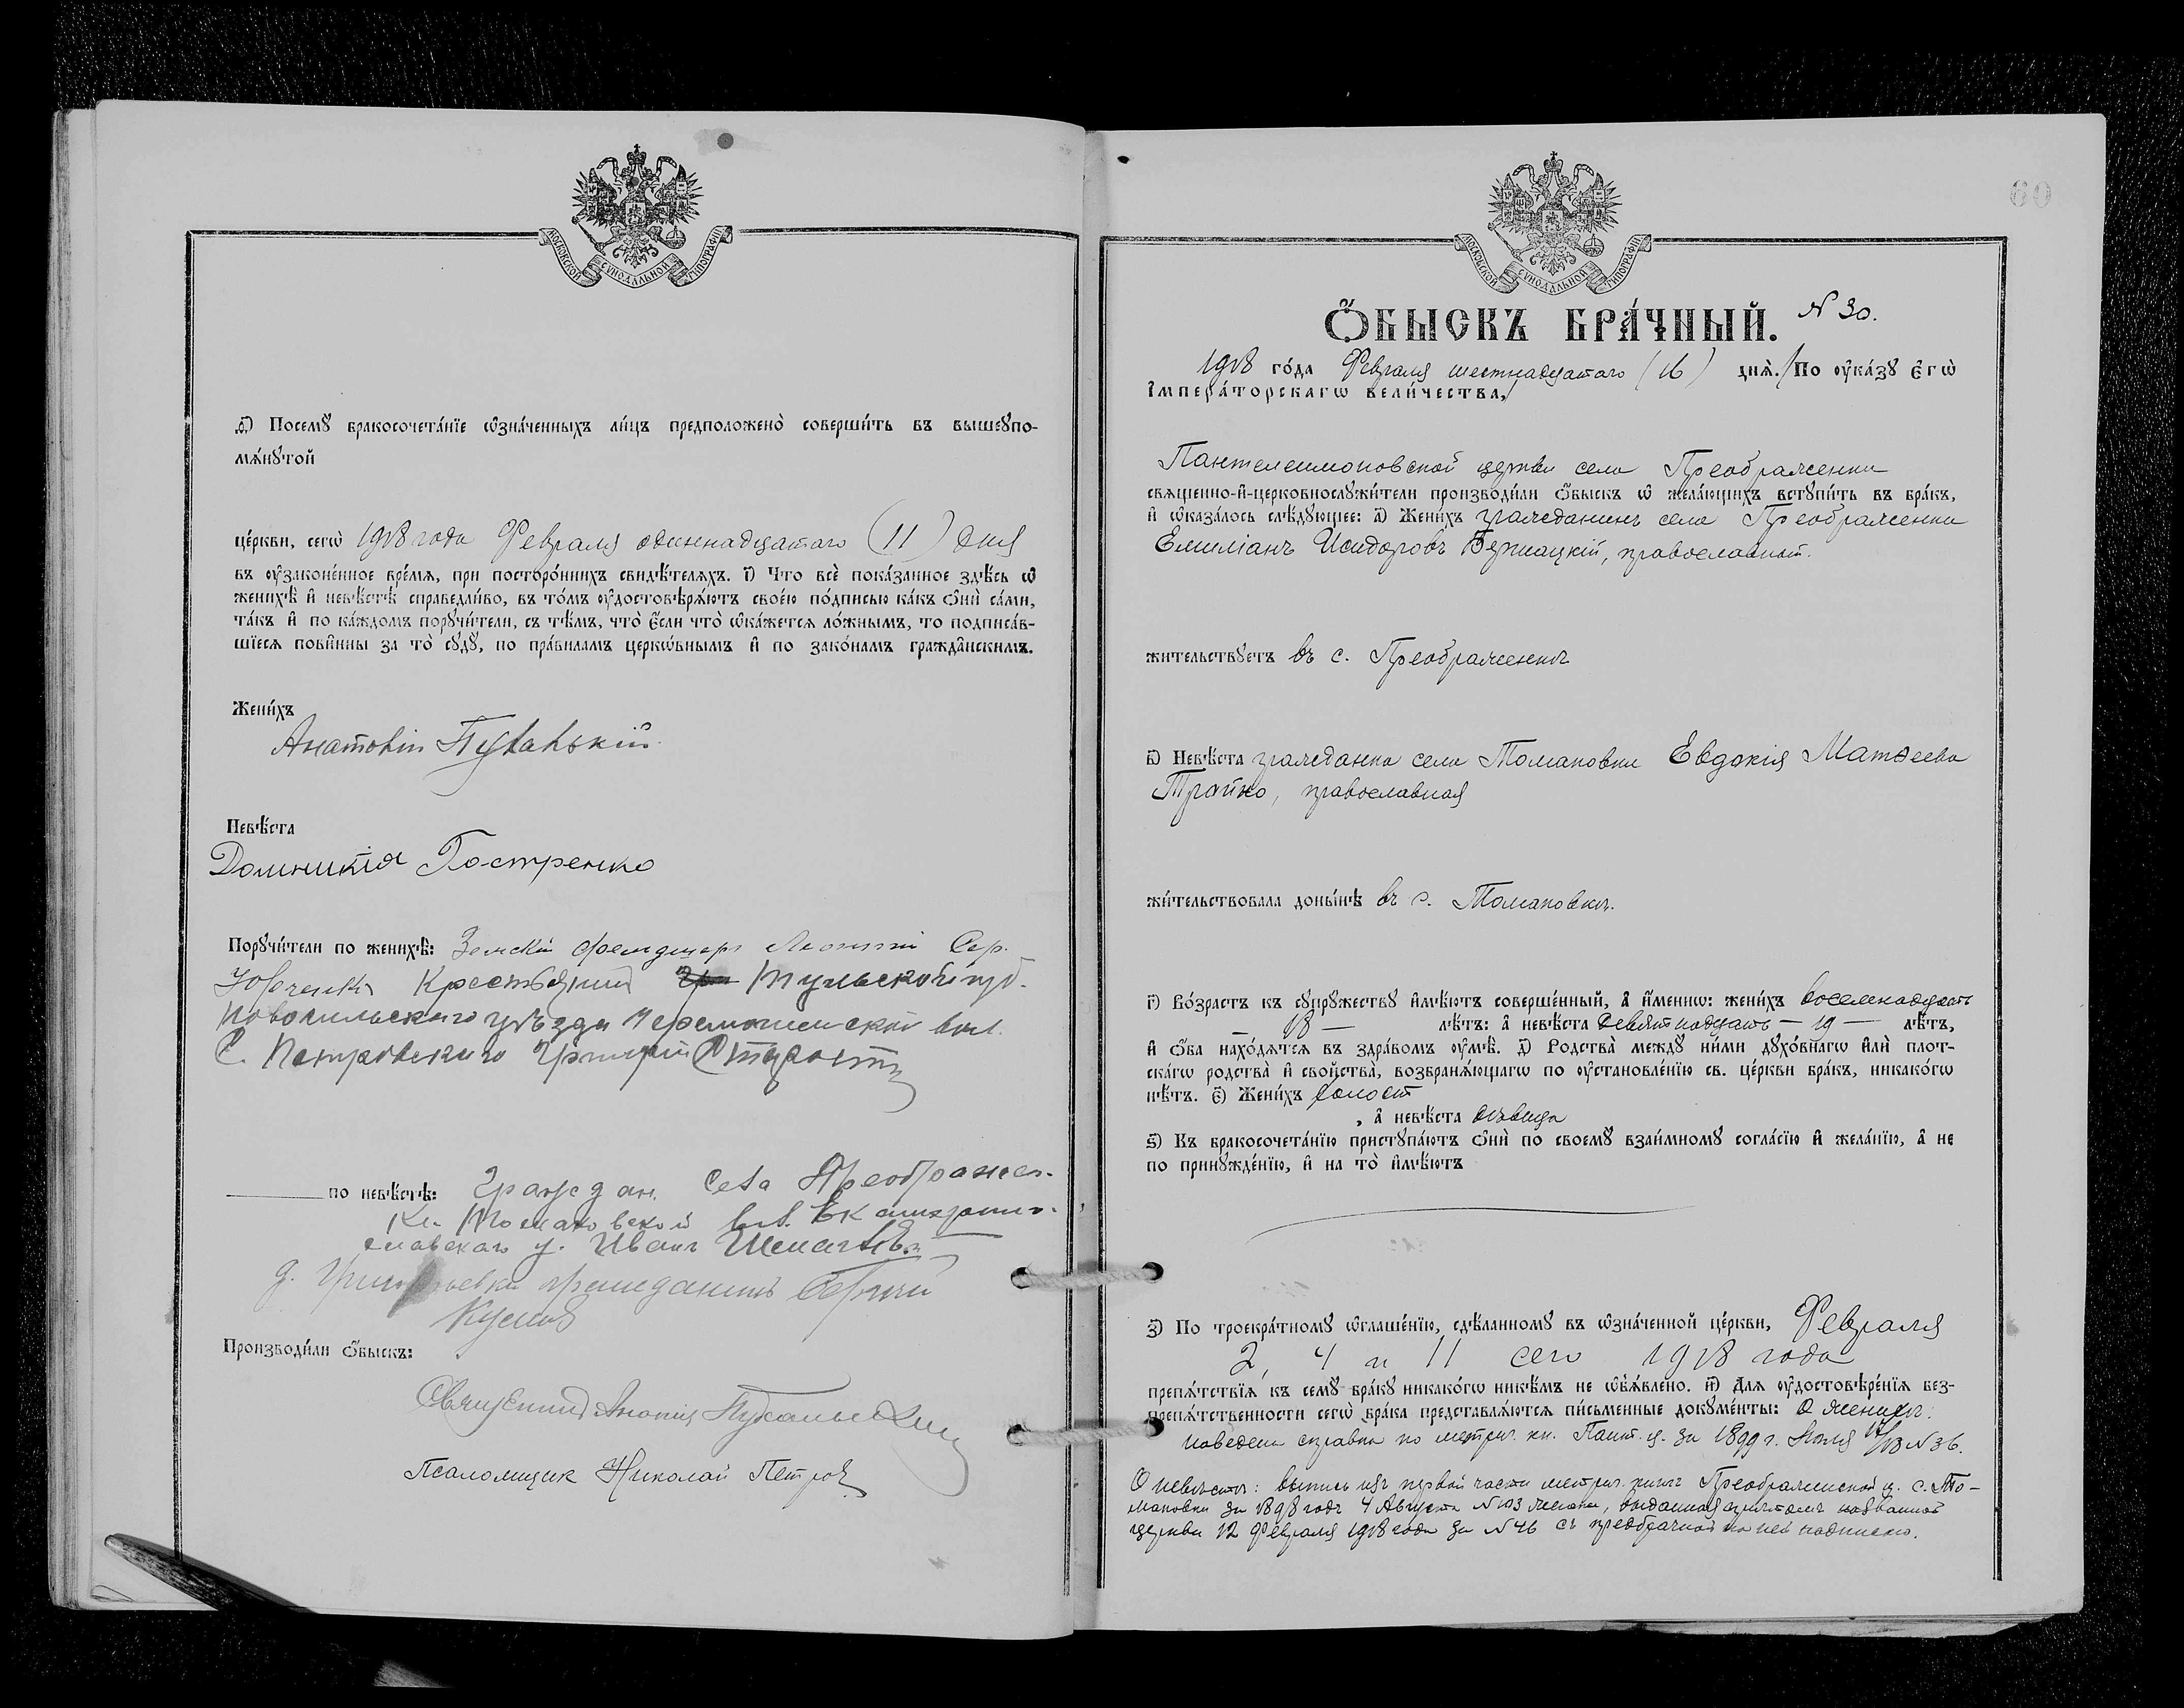 МОСКОВСКОЙ СѴНОДАЛЬНОЙ ТИПОГРАФІИ
ѳ҃) Посемꙋ бракосочета́нїе ѡ҆зна́ченныхъ ли́цъ предположено̀ соверши́ть въ вышеꙋпо-
мѧ́нꙋтой
це́ркви, сегѡ̀ 1918 года Февраля одиннадцатаго (11) дня
въ ᲂу҆зако́ненное вре́мѧ, при посторо́ннихъ свидѣ́телѧхъ. і҃) Что всѐ пока́занное здѣ́сь ѡ҆
женихѣ̀ и҆ невѣ́стѣ справедли́во, въ то́мъ ᲂу҆достовѣрѧ́ютъ свое́ю по́дписью ка́къ ѻ҆нѝ са́ми,
та́къ и҆ по ка́ждомъ порꙋчи́тели, съ тѣ́мъ, что̀ є҆́сли что̀ ѡ҆ка́жетсѧ ло́жнымъ, то подписа́в-
шїесѧ пови́нны за то̀ сꙋдꙋ̀, по пра́виламъ церкѡ́внымъ и҆ по зако́намъ гражда̑нскимъ.
Жени́хъ
Анатолій Пухальскій
Невѣ́ста
Домникія Гостренко
Порꙋчи́тели по женихѣ̀: Земскій фельдшеръ
Крестьянин Тульской губ.
Новосильскаго уѣзда вол.
С. Петровскаго Григорій
по невѣ́стѣ: Граждан. села Преображен-
ки Томаковской вол. Екатерино-
славскаго у. Иванъ
д. гражданинъ Сергѣй
Производи́ли ѻ҆́быскъ:
Священник Пухальскій
Псаломщик Николай Петров
60
МОСКОВСКОЙ СѴНОДАЛЬНОЙ ТИПОГРАФІИ
Ѻ҆́БЫСКЪ БРА́ЧНЫЙ. N 30.
1918 го́да Февраля шестнадцатаго (16) днѧ̀. По ᲂу҆ка́зꙋ є҆гѡ̀
і҆мпера́торскагѡ вели́чества,
Пантелеимоновской церкви села Преображенки
свѧще́нно-и҆-церковнослꙋжи́тели производи́ли ѻ҆́быскъ ѡ҆ жела́ющихъ встꙋпи́ть въ бра́къ,
и҆ ѡ҆каза́лось слѣ́дꙋющее: а҃) Жени́хъ гражданинъ села Преображенки
Емиліанъ Исидоровъ Бернацкій, православный.
жи́тельствꙋетъ въ с. Преображенкѣ
в҃) Невѣ́ста гражданка села Томаковки Евдокія Матѳеева
Тройно, православная
жи́тельствовала доны́нѣ въ с. Томаковкѣ.
г҃) Во́зрастъ къ сꙋпрꙋ́жествꙋ и҆мѣ́ютъ соверше́нный, а҆ и҆́меннѡ: жени́хъ восемнадцать
18 — лѣ́тъ: а҆ невѣ́ста девятнадцать — 19 — лѣ́тъ,
и҆ ѻ҆́ба нахо́дѧтсѧ въ здра́вомъ ᲂу҆мѣ̀. д҃) Родства̀ междꙋ̀ ни́ми дꙋхо́внагѡ и҆лѝ плот-
ска́гѡ родства̀ и҆ свойства̀, возбранѧ́ющагѡ по ᲂу҆становле́нїю св. це́ркви бра́къ, никако́гѡ
нѣ́тъ. є҃) Жени́хъ холост
, а҆ невѣ́ста дѣвица
ѕ҃) Къ бракосочета́нїю пристꙋпа́ютъ ѻ҆нѝ по своемꙋ̀ взаи́мномꙋ согла́сїю и҆ жела́нїю, а҆ не
по принꙋжде́нїю, и҆ на то̀ и҆мѣ́ютъ
з҃) По троекра́тномꙋ ѡ҆глаше́нїю, сдѣ́ланномꙋ въ ѡ҆зна́ченной це́ркви, Февраля
2, 4 и 11 сего 1918 года
препѧ́тствїѧ къ семꙋ̀ бра́кꙋ никако́гѡ никѣ́мъ не ѡ҆б̾ѧ́влено. и҃) Для ᲂу҆достовѣре́нїѧ без-
препѧ́тственности сегѡ̀ бра́ка представлѧ́ютсѧ пи́сьменные докꙋме́нты: О женихѣ:
наведена справка по метрич. кн. Пант. ц. за 1899 г. N 36.
О невѣстѣ: выпись изъ первой части метрич. книгъ Преображенской ц. с. То-
маковки за 1898 годъ 4 Августа N 103 женск., выданная причтомъ названной
церкви 12 Февраля 1918 года за N 46 съ предбрачной на ней надписью.